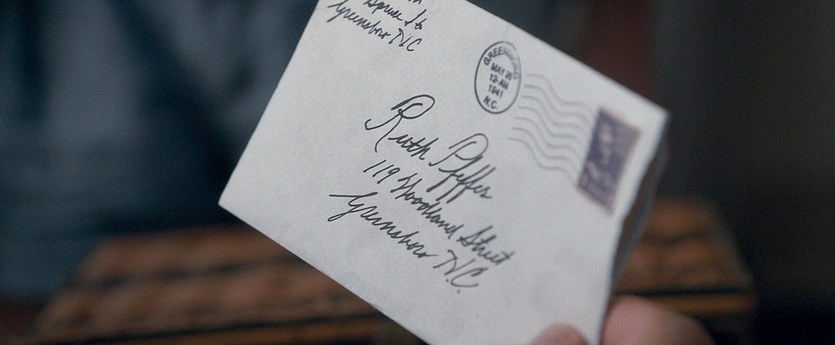 Spruce St.
Greensboro NC
GREENSBORO
MAY 25
12-AM
1941
N.C.
Ruth Pfeffer
119 Woodland Street
Greensboro N.C.